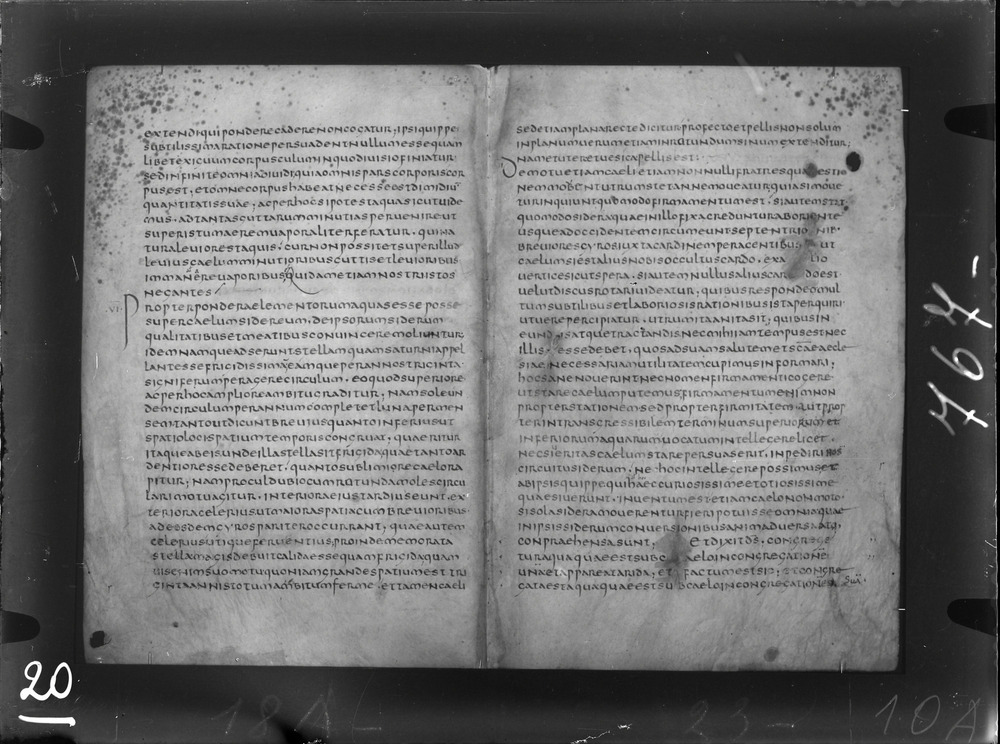 extendi qui pondere cadere non cogatur; ipsi quippe
subtilissima ratione persuadent nullum esse quam
libet exicuum corpusculum in quo divisio finiatur
sed infinite omnia dividi quia omnis pars corporis cor
pus est. et omne corpus habeat necesse est dimidiū
quantitatis suae; ac per hoc si potest aqua sicut vide
mus. ad tantas guttarum minutias pervenire ut
super istum aerem vaporaliter feratur. qui na
tura leviore est aquis. cur non possit et super illud
levius caelum minutioribus guttis et levioribus
immanere vaporibus quidam etiam nostri istos
negantes
VI. Propter pondera elementorum aquas esse posse
super caelum sidereum. de ipsorum siderum
qualitatibus et meatibus convincere moliuntur;
idem namque adserunt stellam quam saturni appel
lant esse frigidissimā eamque per annos triginta
signiferum peragere circulum. eo quod superiore
ac per hoc ampliore ambitu graditur; nam sol eun
dem circulum per annum complet et luna per men
sem tanto ut dicunt brevius quanto inferius ut
spatio loci spatium temporis congruat. quaeritur
itaque ab eis unde illa stella sit frigida quae tanto ar
dentior esse deberet. quanto sublimi gre caelo ra
pitur; nam procul dubio cum rutunda moles circu
lari motu agitur. interiora eius tardius eunt. ex
teriora celerius ut maiora spatia cum brevioribus
ad eosdem gyros pariter occurrant, quae autem
celerius utique ferventius, proinde memorata
stella magis debuit calida esse quam frigida quam
vis enim suo motu quoniam grande spatium est tri
ginta annis totum ambitum fere et tamen caeli
sed etiam plana recte dicitur profecto et pellis non solum
in planum verum etiam in rutundum sinum extenditur;
nam et uter et vesica pellis est:
De motu etiam caeli etiam nonnulli fratres quaestio
nem movent utrum stet an ne moveatur quia si move
tur inquiunt quomodo firmamentum est. si autem stat
quomodo sidera quae in illo fixa creduntur ab oriente
usque ad occidentem circumeunt septentrionib'
breviores gyros iuxta cardinem peragentibus ut
caelum si est alius nobis occultus cardo. ex alio
vertice sicut spera. si autem nullus alius cardo est
velut discus rotari videatur, quibus respondeo mul
tum subtilibus et laboriosis rationibus ista perquiri
ut vere percipiatur. utrum ita an ita sit; quibus in
eundis atque tractandis nec mihi iam tempus est nec
illis esse debet. quos ad suam salutem et scāe aecle
siae necessariam utilitatem cupimus informari;
hoc sane noverint nec nomen firmamenti cogere
ut stare caelum putemus; firmamentum enim non
propter stationem sed propter firmitatem aut prop
ter intransgressibilem terminum superiorum et
inferiorum aquarum vocatum intellegere licet.
nec si veritas caelum stare persuaserit. inpediri nos
circuitu siderum. ne hoc intellegere possimus et
ab ipsis quippe qui haec curiosissime et otiosissime
quaesiverunt. inventum est etiam caelo non moto.
si sola sidera moverentur fieri potuisse omnia quae
in ipsis siderum conversionibus animadversa atq;
conpraehensa sunt. et dixit ds. congrege
tur aqua quae est sub caelo in congregatione
una et appareat arida; et factum est sic; et congre
gata est aqua quae est sub caelo in congregatione suā
767-
20
18A-
23-
10A